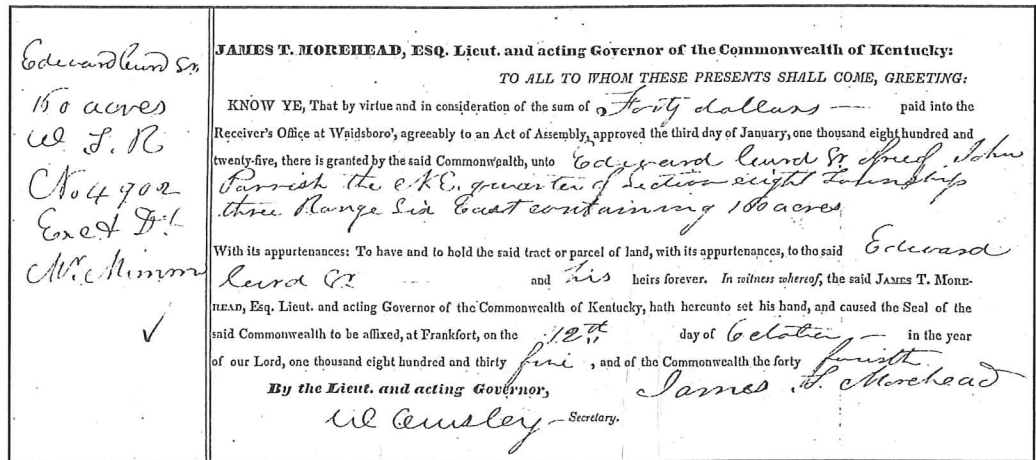 Edward Curd Sr.
160 acres
W. T. R
No 4902
Exd & Dd
Mr. Mimm
✓
JAMES T. MOREHEAD, ESQ. Lieut. and acting Governor of the Commonwealth of Kentucky:
TO ALL TO WHOM THESE PRESENTS SHALL COME, GREETING:
KNOW YE, That by virtue and in consideration of the sum of Forty dollars — paid into the
Receiver's Office at Waidsboro', agreeably to an Act of Assembly, approved the third day of January, one thousand eight hundred and
twenty-five, there is granted by the said Commonwealth, unto Edward Curd Sr John
Parrish the N.E. quarter of Section eight Township
three Range Six East containing 160 acres
With its appurtenances: To have and to hold the said tract or parcel of land, with its appurtenances, to the said Edward
Curd Sr and his heirs forever. In witness whereof, the said JAMES T. MORE-
HEAD, Esq. Lieut. and acting Governor of the Commonwealth of Kentucky, hath hereunto set his hand, and caused the Seal of the
said Commonwealth to be affixed, at Frankfort, on the 12th day of October — in the year
of our Lord, one thousand eight hundred and thirty five, and of the Commonwealth the forty fourth
By the Lieut. and acting Governor, James T. Morehead
W Owsley — Secretary.